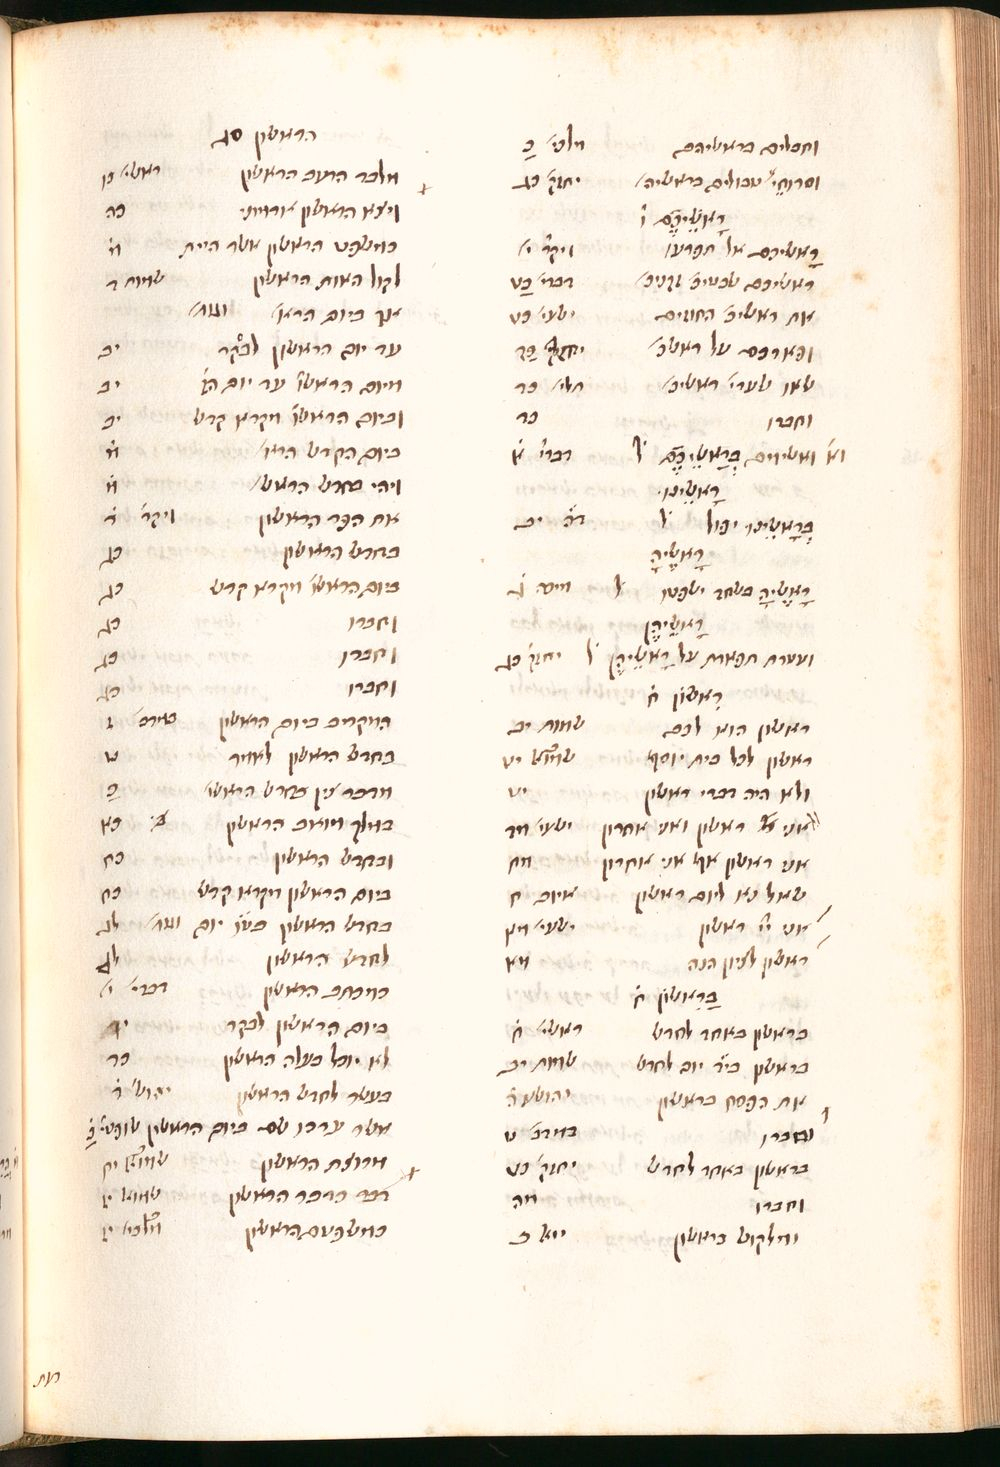 וחבלים בראשיהם מלכי׳ כ
וסרוחי׳ טבולים בראשיה׳ יחזק׳ כג
רָאשֵׁיכֶם ו׳
רָאשיכם אל תפרעו ויקר׳ י׳
ראשיכם שבטיכ׳ זקניכ׳ דברי׳ כט
את ראשיכ׳ החוזים ישעי׳ כט
ופארכם על ראשיכ׳ יחזק׳ כד
שאו שערי׳ ראשיכ׳ תלי׳ כד
וחברו כד
ואשימם בְרָאשֵיכֶם ל׳ דברי׳ א
רָאשֵינוּ
בְרָאשֵינו יפול ל׳ דה׳ יב
רָאשֶיהָ
רָאשֶיהָ בשחד ישפטו ל׳ מיכה ג
רָאשֵיהֶן
ועטרת תפארת על רָאשֵיהֶן ל׳ יחזק׳ כג
רִאשׁוֹן ח׳
ראשון הוא לכם שמות יב
ראשון לכל בית יוסף שמואל יט
ולא היה דברי ראשון יט
אני ראשון ואני אחרון ישעי׳ מד
אני ראשון אף אני אחרון מח
שאל נא ליום ראשון איוב ח
אני יי׳ ראשון ישעי׳ מא
ראשון לציון הנה מא
בָרִאשׁוֹן ח׳
בראשון באחד לחדש ראשי׳ ח
בראשון בי״ד יום לחדש שמות יב
את הפסח בראשון יהושע ה
וחברו במדב׳ ט
בראשון באחד לחדש יחזק׳ כט
וחברו מה
ומלקוש בראשון יואל ב
הראשון סג
מלבד הרעב הראשון ראשי׳ כו
ויצא הראשון אדמוני כה
כמשפט הראשון אשר היית מ
לקול האות הראשון שמות ד
אך ביום הראש׳ וגו׳
עד יום הראשון לבקר יב
מיום הראשו׳ עד יום הז׳ יב
וביום הראשו׳ מקרא קדש יב
ביום החדש הראש׳ מ
ויהי בחדש הראש׳ מ
את הפר הראשון ויקר׳ ד
בחדש הראשון כג
ביום הראשו׳ מקרא קדש כג
וחברו כג
וחברו כג
וחברו כג
המקריב ביום הראשון במדב׳ ז
בחדש הראשון לאמר ט
מדבר צין בחדש הראשו׳ כ
במלך מואב הראשון כא
ובחדש הראשון כח
ביום הראשון מקרא קדש כח
בחדש הראשון בט״ו יום וגו׳ לג
לחדש הראשון לג
כמכתב הראשון דברי׳ י׳
ביום הראשון לבקר
לא יוכל בעלה הראשון כד
בעשור לחדש הראשון יהוש׳ ד
אשר ערכו שם ביום הראשון שופטי׳ כ
מרוצת הראשון שמואל יח
דבר כדבר הראשון שמואל יז
כמשפטם הראשון מלכי׳ יז
רעת